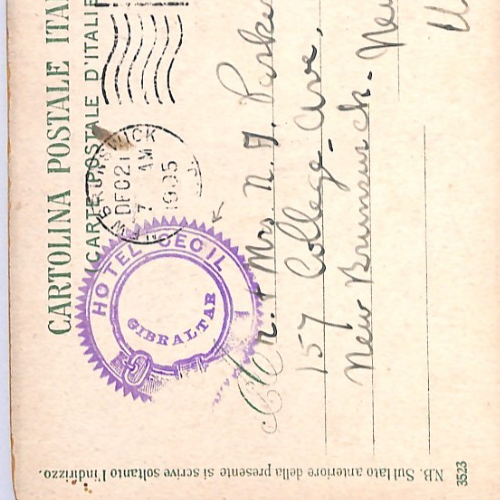 CARTOLINA POSTALE ITAL
(CARTE POSTALE D'ITALIE
WICK
DEC 21
7 AM
1905
HOTEL CECIL
GIBRALTAR
Mr. & Mrs. N. G. Parke
157 College Ave,
New Brunswick. New
N.B. Sul lato anteriore della presente si scrive soltanto l'indirizzo.
3523